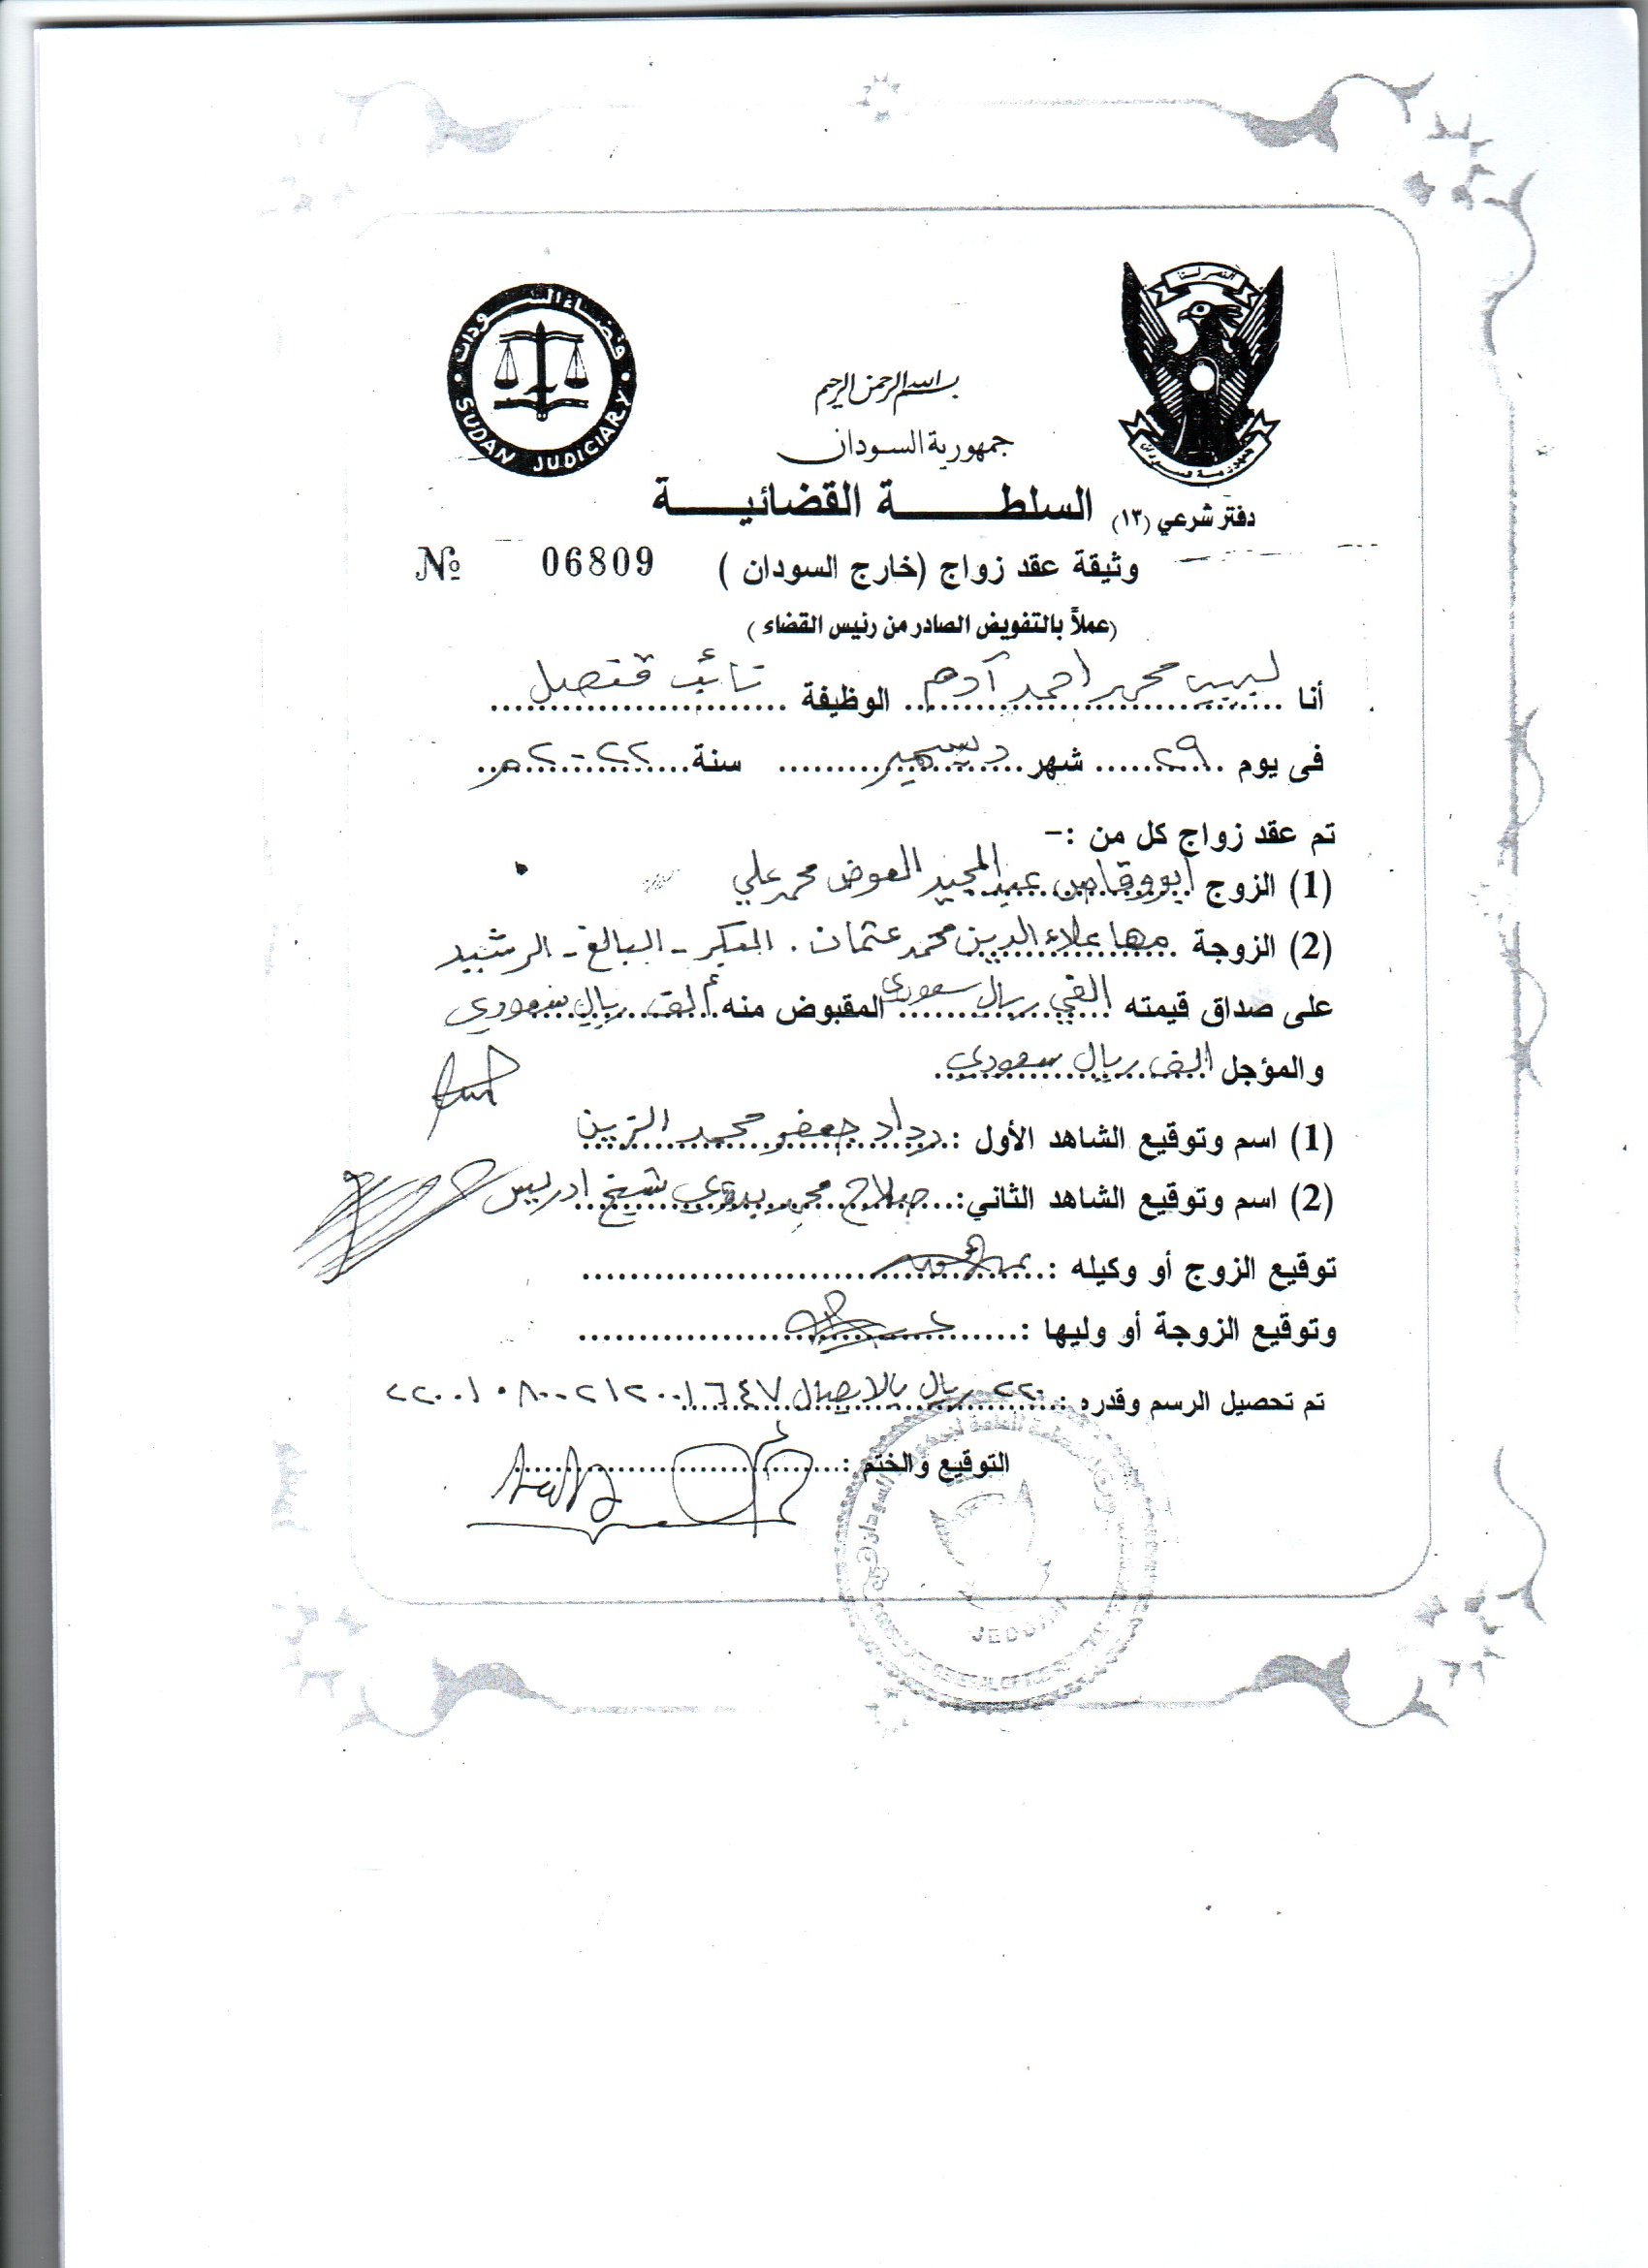 النصر لنا
جمهورية السودان
قضاء السودان
SUDAN JUDICIARY
بسم الله الرحمن الرحيم
جمهورية السودان
السلطة القضائية
دفتر شرعي (١٣)
وثيقة عقد زواج (خارج السودان )
№ 06809
(عملاً بالتفويض الصادر من رئيس القضاء )
أنا لبيب محمد احمد آدم الوظيفة نائب قنصل
فى يوم ٢٩ شهر ديسمبر سنة ٢٠٢٢م
تم عقد زواج كل من :-
(1) الزوج ابووقاص عبدالمجيد العوض محمد علي
(2) الزوجة مها علاء الدين محمد عثمان . البكر - البالغ - الرشيد
على صداق قيمته الفي ريال سعودي المقبوض منه ألف ريال سعودي
والمؤجل الف ريال سعودي
(1) اسم وتوقيع الشاهد الأول : رداد جعفر محمد الزين
(2) اسم وتوقيع الشاهد الثاني: صلاح محمد بدوي شيخ ادريس
توقيع الزوج أو وكيله :
وتوقيع الزوجة أو وليها :
تم تحصيل الرسم وقدره : ٢٢٠ ريال بالايصال
التوقيع والختم :
JEDDAH